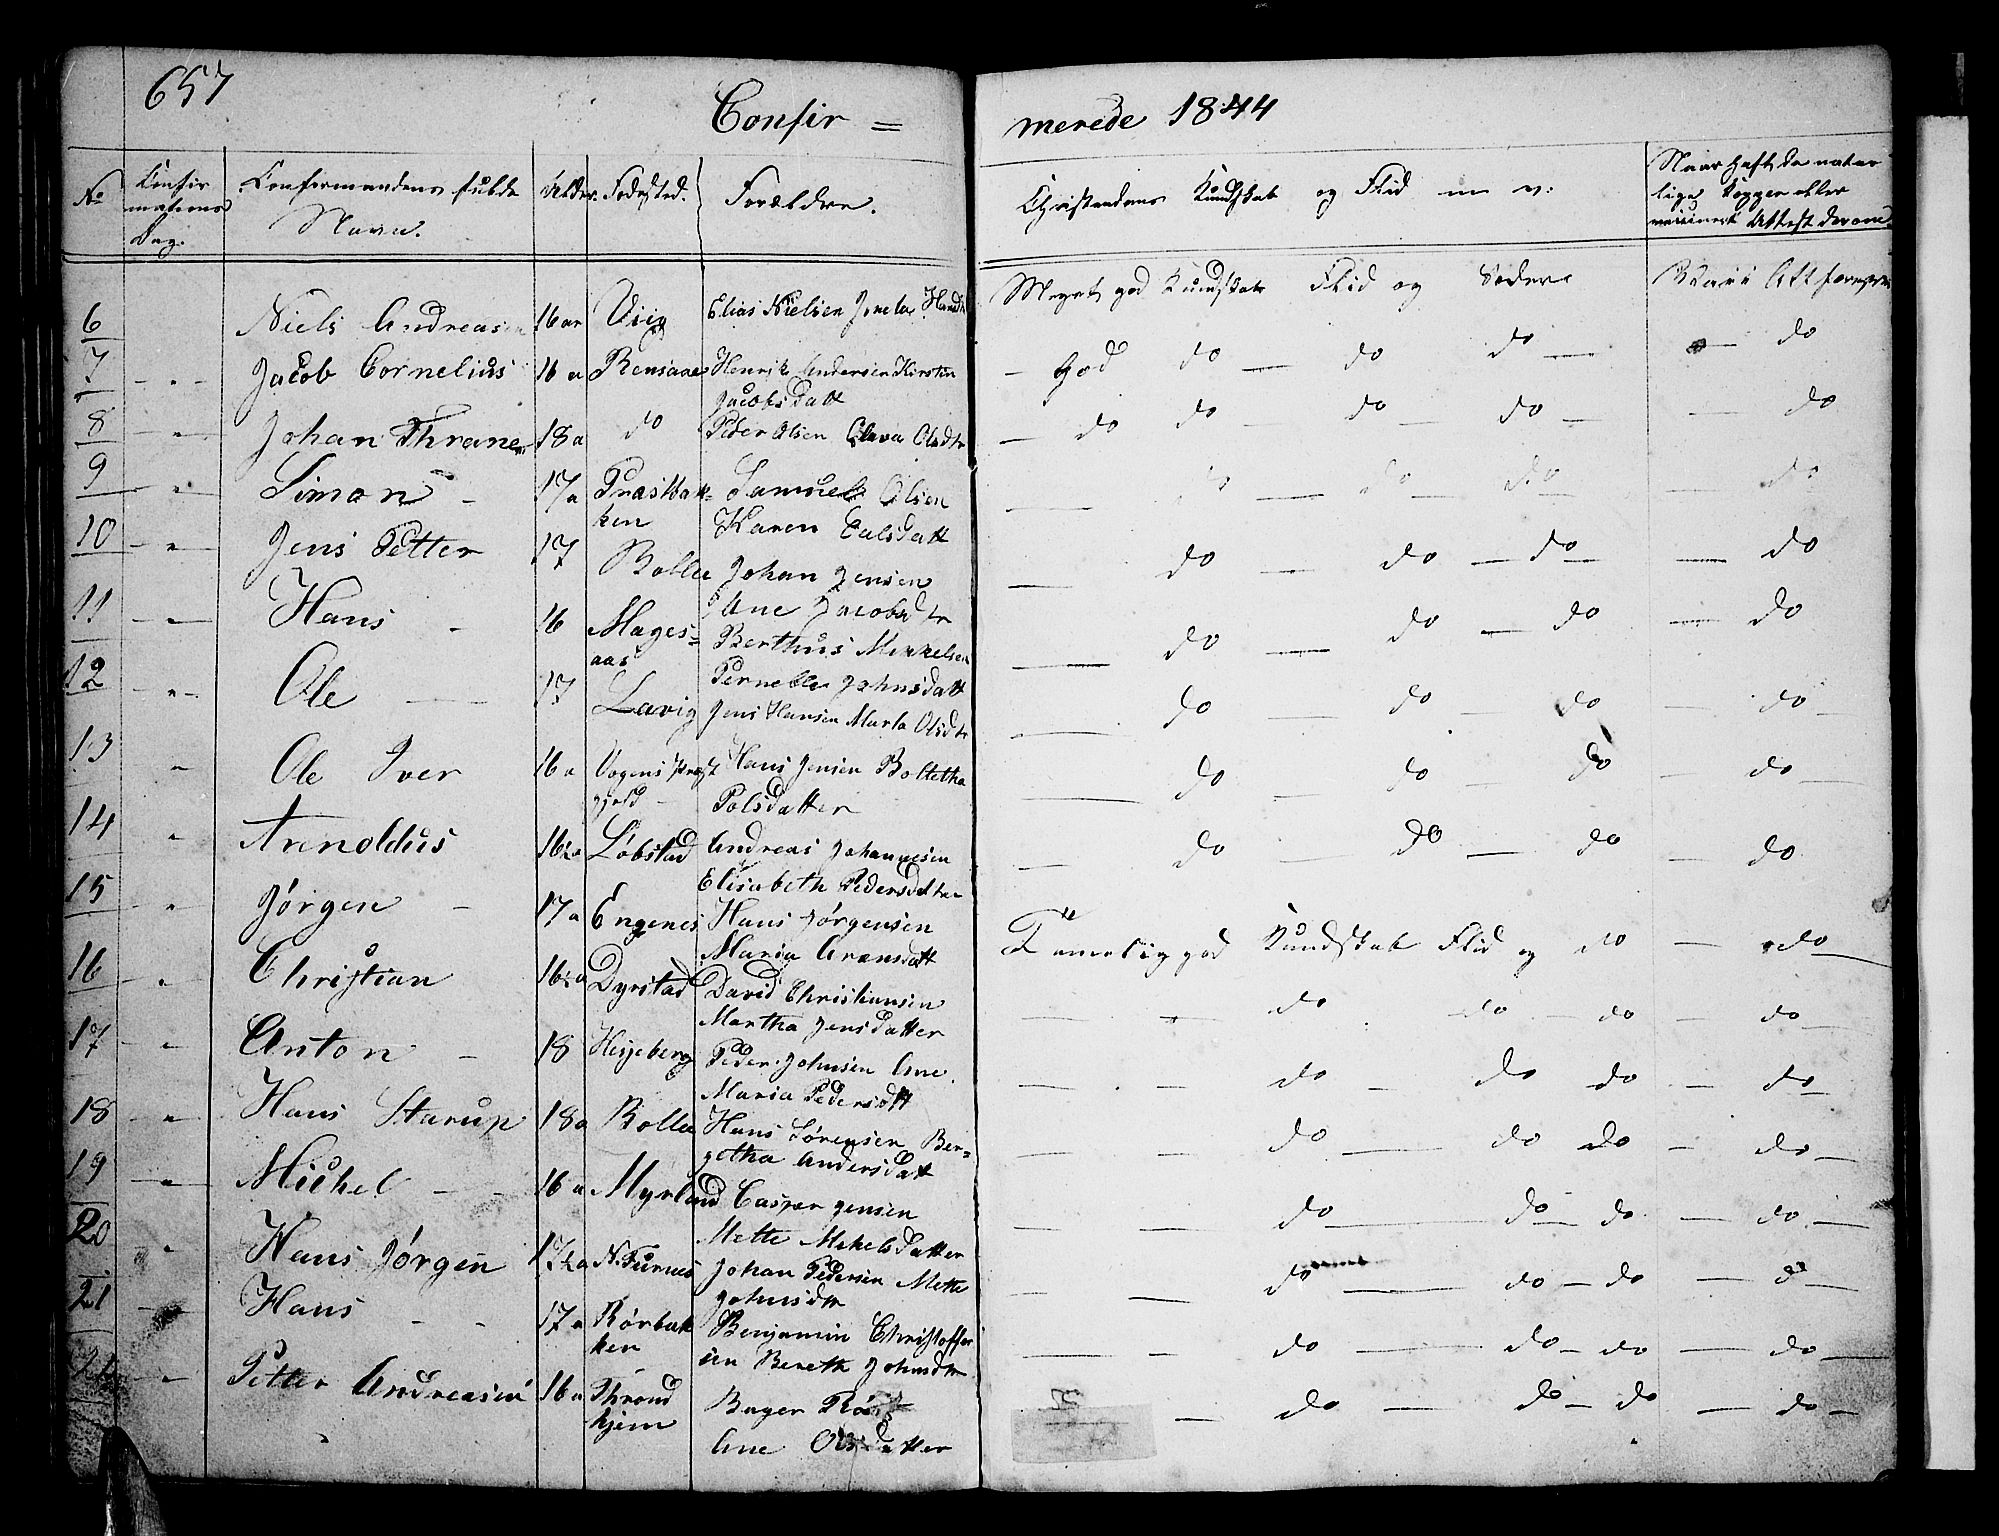 657
Confir =
merede 1844
No
Confir
mations
Dag.
Confirmandens fulde
Navn.
Alder.
Fødested.
Forældre.
Christendoms Kundskab og Flid m v:
Naar haft de natur
lige Kopper eller
vaccineret Attest derom
6 Niels Andreasen 16 aar Viig Elias Nielsen Meget god Kundskab Flid og Sæder
7 - " - Jacob Cornelius 16 a Rensaae Henrik Andersen Kirstin - God do - do do - do
Jacobsdatt
8 - " - Johan Thrane 18 a do Peder Olsen Olava Olsdtr - do do - do - do - - do
9 - " - Simon - 17 a Præstbak= Samuel Olsen - do - do - do - do
ken Karen
10 - " - Jens Petter 17 Bolle Johan Jensen - do - do - do - do
Ane Jacobsdtr
11 - " - Hans - 16 Mages= Berthus Mikkelsen - do - do - do - do
aas Pernelle Johnsdatt
12 - " - Ole - 17 Lavig Jens Hansen Marta Olsdtr - do - do - do - do -
13 " Ole Iver 16 a Vogens Præst Hans Jensen Boletha - do - do - do - do -
gjeld - Polsdatter
14 " Arnoldus 16½ a Løbstad Andreas Johannesen - do - do - do - do
Elisabeth Pedersdatter
15 " Jørgen - 17 a Engenes Hans Jørgensen Temelig god Kundskab Flid og do - do
Maria Aransdatt
16 " Christian 16½ a Dyrstad David Christiansen - - do - do - do - do -
Martha Jensdatter
17 - " Anton - 18 Hesjeberg Peder Johnsen Ane - - do - do do - do
Maria Pedersdtt
18 - " - Hans Starup 18 a Bolle Hans Sørensen Ber= - - do - do do - do -
getha Andersdatt
19 - " - Michel - - 16 a Myrland Casper Jensen - - do - do - do - do -
Mette Mikelsdatter
20 " Hans Jørgen 17½ a N. Furnes Johan Pedersen Mette - - do - do - do - do -
Johnsdtr
21 - " - Hans - - 17 a Rørbak Benjamin Christoffer - - do do - do - do -
ken sen Bereth Johnsdtr
22 - " - Petter Andreasen 16 a Thrond Bager - do - do - do - do -
hjem Ane Olsdatter